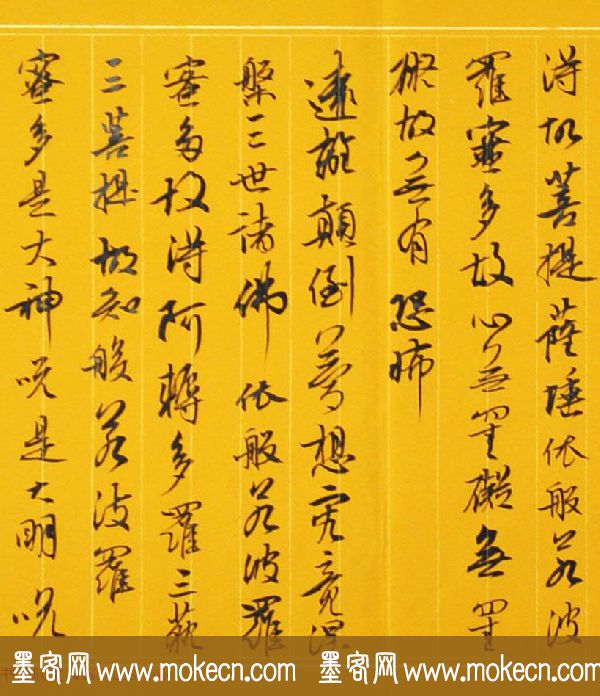 得故菩提薩埵依般若波
羅蜜多故心無罣礙無罣
礙故無有恐怖
遠離顛倒夢想究竟涅
槃三世諸佛依般若波羅
蜜多故得阿耨多羅三藐
三菩提故知般若波羅
蜜多是大神咒是大明咒
墨客网 www.mokecn.com 墨客网 www.mokecn.com